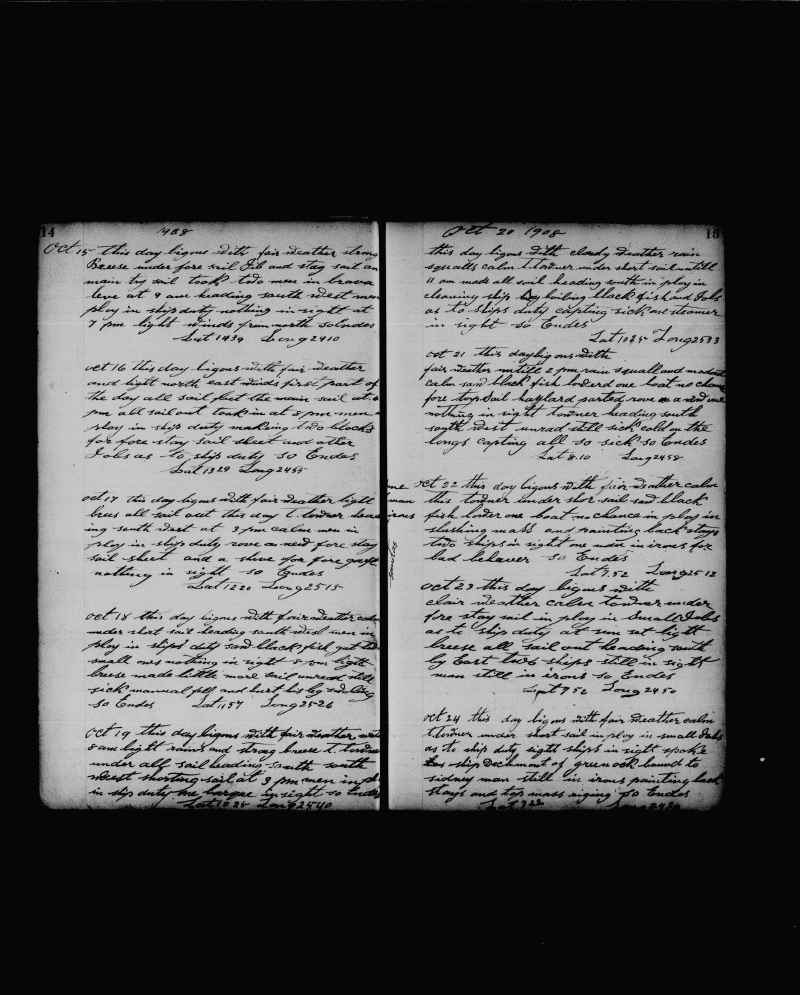 14
1908
Oct 15 this day bigons with fair weather strong
Breese under fore sail Jib and stay sail an
main try sail took two men in brava
leve at 9 am heading south west men
ploy in ship duty nothing in sight at
7 pm light winds from north So Endes
Lat 1439 Long 2410
oct 16 this day bigons with fair weather
and light north east winds first part of
the day all sail but the main sail at
pm all sail out took in at 5 pm men
ploy in ship duty making two blocks
for fore stay sail sheet and other
Jobs as to ship duty so Endes
Lat 1329 Long 2455
oct 17 this day bigons with fair weather light
bres all sail out this day t. towner head
ing south west at 3 pm calm men in
ploy in ship duty rove a new fore stay
sail sheet and a shive for fore gaff
nothing in sight so Endes
Lat 1220 Long 2515
oct 18 this day bigons with fair weather calm
under short sail heading south west men in
ploy in ships duty saw black fish got two
small ones nothing in sight 8 pm light
breese made little more sail unread still
sick manual fell and hurt his leg
so Endes Lat 1157 Long 25-26
oct 19 this day bigons with fair weather
8 am light rains and strong breese t. towner
under all sail heading south south
west shorting sail at 3 pm men in pl
in ship duty one barque in sight so Endes
Lat 10 25 Long 2540
15
Oct 20 1908
this day bigons with cloudy weather rain
squalls calm t towner under short sail untill
11 am made all sail heading south in ploy in
cleaning ship boiling black fish and Jobs
as to ships duty capting sick one steamer
in sight so Endes
Lat 1025 Long 2533
oct 21 this day bigons with
fair weather untill 2 pm rain squall and moderate
calm saw black fish lowerd one boat no chance
fore topsail halyard parted rove a new one
nothing in sight towner heading south
south west unrad still sick cold on the
longs capting all so sick so Endes
Lat 8.10 Long 2458
oct 22 this day bigons with fair weather calm
this towner under shor sail saw black
fish lower one boat no chance in ploy in
slushing mass and painting back stays
two ships in sight one man in irons for
bad behaver so Endes
Lat 7.52 Long 2512
me
man
irons
oct 23 this day bigons with
clair weather calm towner under
fore stay sail in ploy in small Jobs
as to ship duty at sun set light
breese all sail out heading south
by East two ships still in sight
man still in irons so Endes
Lat 752 Long 2450
oct 24 this day bigons with fair weather calm
t towner under short sail in ploy in small Jobs
as to ship duty eight ships in sight spoke
ship Dechmont of greenock bound to
sidney man still in irons painting back
stays and top mass riging so Endes
Lat 722 Long 2430